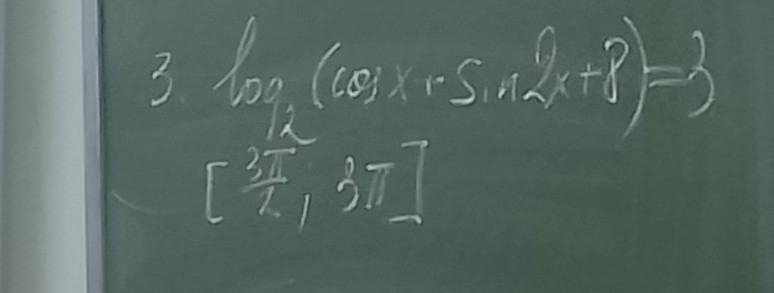 3. log₂ (cos x + sin 2x + 8) = 3
[3π/2; 3π]